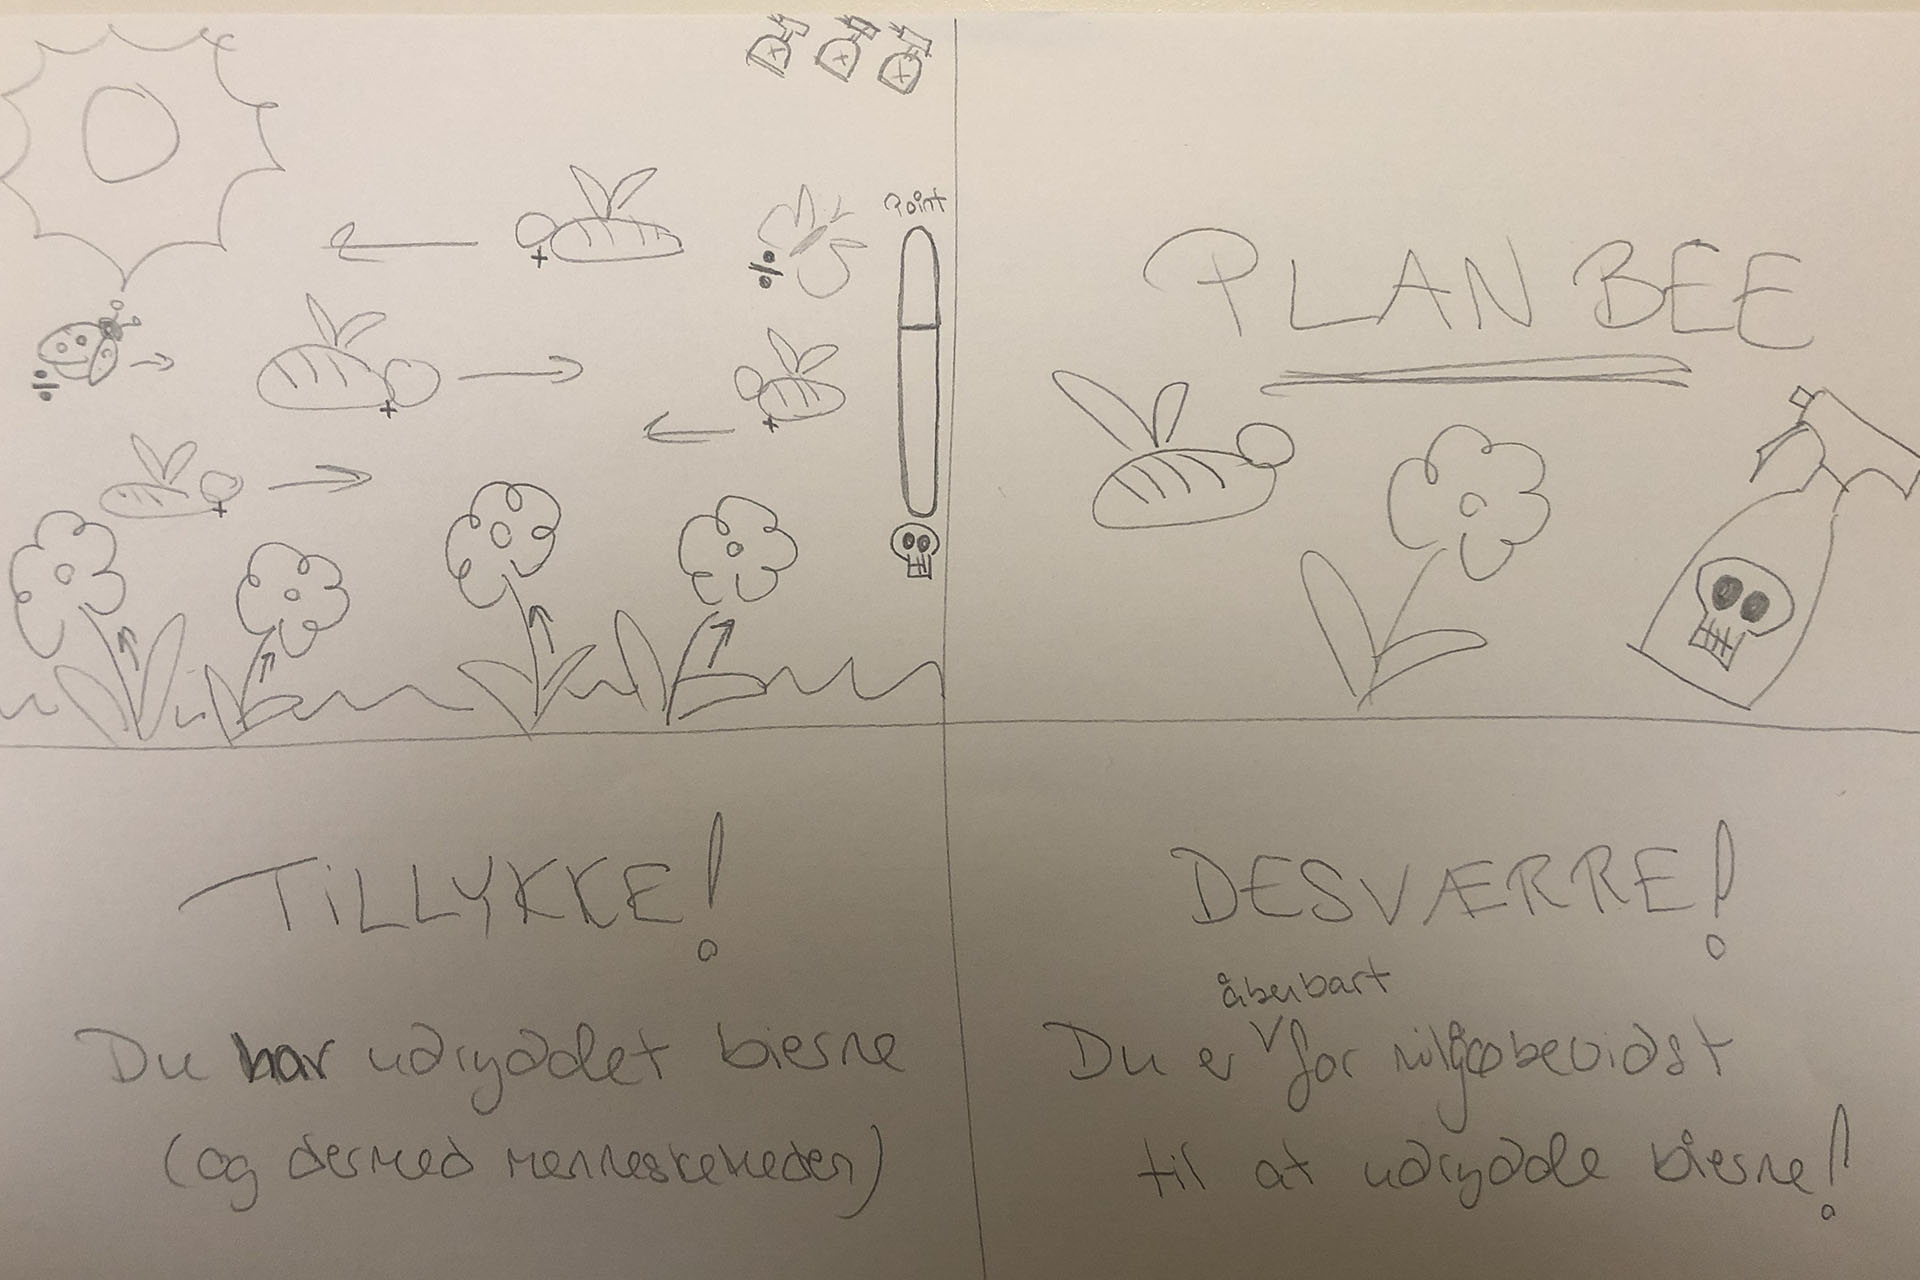 Point
PLAN BEE
TILLYKKE!
Du har udryddet bierne
(og dermed menneskeheden)
DESVÆRRE!
åbenbart
Du er for miljøbevidst
til at udrydde bierne!